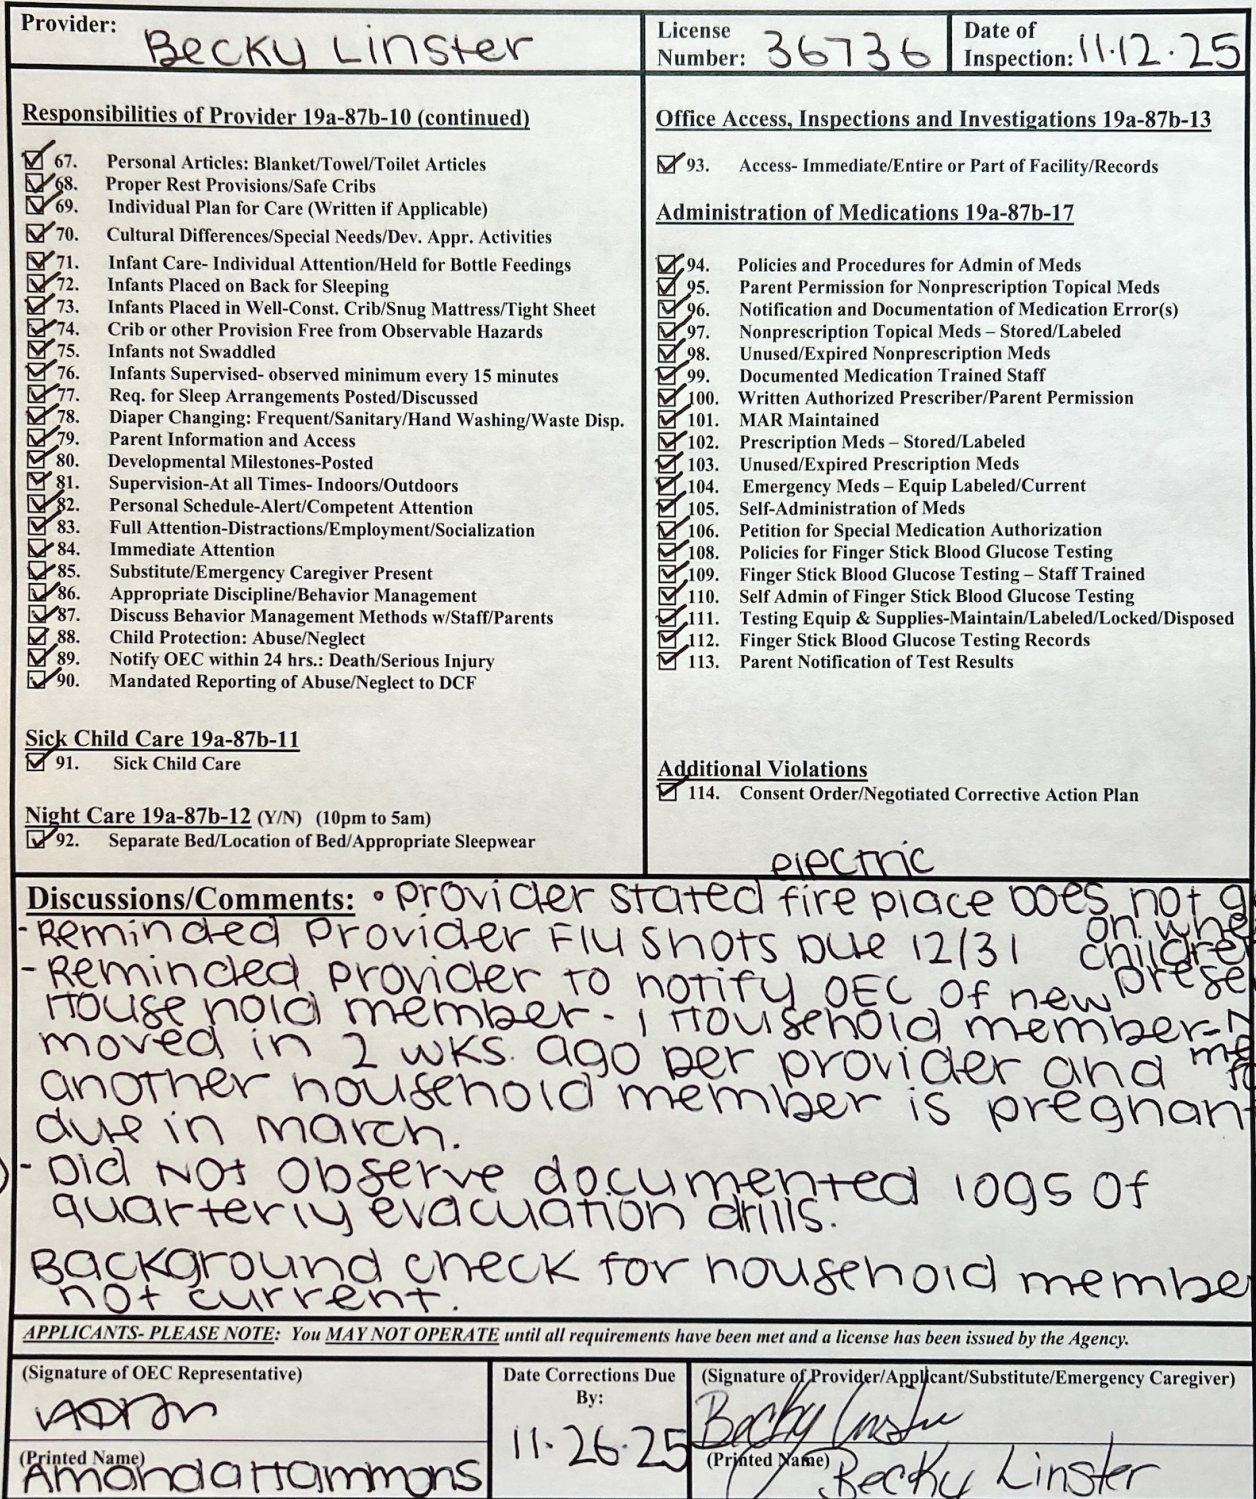 Provider: Becky Linster
License Number: 36736
Date of Inspection: 11.12.25
Responsibilities of Provider 19a-87b-10 (continued)
67. Personal Articles: Blanket/Towel/Toilet Articles
68. Proper Rest Provisions/Safe Cribs
69. Individual Plan for Care (Written if Applicable)
70. Cultural Differences/Special Needs/Dev. Appr. Activities
71. Infant Care- Individual Attention/Held for Bottle Feedings
72. Infants Placed on Back for Sleeping
73. Infants Placed in Well-Const. Crib/Snug Mattress/Tight Sheet
74. Crib or other Provision Free from Observable Hazards
75. Infants not Swaddled
76. Infants Supervised- observed minimum every 15 minutes
77. Req. for Sleep Arrangements Posted/Discussed
78. Diaper Changing: Frequent/Sanitary/Hand Washing/Waste Disp.
79. Parent Information and Access
80. Developmental Milestones-Posted
81. Supervision-At all Times- Indoors/Outdoors
82. Personal Schedule-Alert/Competent Attention
83. Full Attention-Distractions/Employment/Socialization
84. Immediate Attention
85. Substitute/Emergency Caregiver Present
86. Appropriate Discipline/Behavior Management
87. Discuss Behavior Management Methods w/Staff/Parents
88. Child Protection: Abuse/Neglect
89. Notify OEC within 24 hrs.: Death/Serious Injury
90. Mandated Reporting of Abuse/Neglect to DCF
Sick Child Care 19a-87b-11
91. Sick Child Care
Night Care 19a-87b-12 (Y/N) (10pm to 5am)
92. Separate Bed/Location of Bed/Appropriate Sleepwear
Office Access, Inspections and Investigations 19a-87b-13
93. Access- Immediate/Entire or Part of Facility/Records
Administration of Medications 19a-87b-17
94. Policies and Procedures for Admin of Meds
95. Parent Permission for Nonprescription Topical Meds
96. Notification and Documentation of Medication Error(s)
97. Nonprescription Topical Meds – Stored/Labeled
98. Unused/Expired Nonprescription Meds
99. Documented Medication Trained Staff
100. Written Authorized Prescriber/Parent Permission
101. MAR Maintained
102. Prescription Meds – Stored/Labeled
103. Unused/Expired Prescription Meds
104. Emergency Meds – Equip Labeled/Current
105. Self-Administration of Meds
106. Petition for Special Medication Authorization
108. Policies for Finger Stick Blood Glucose Testing
109. Finger Stick Blood Glucose Testing – Staff Trained
110. Self Admin of Finger Stick Blood Glucose Testing
111. Testing Equip & Supplies-Maintain/Labeled/Locked/Disposed
112. Finger Stick Blood Glucose Testing Records
113. Parent Notification of Test Results
Additional Violations
114. Consent Order/Negotiated Corrective Action Plan
electric
Discussions/Comments: • Provider stated fire place Does not
on
- Reminded Provider Flu shots Due 12/31
- Reminded provider to notify OEC of new
House hold member - 1 Household member-
moved in 2 wks. ago per provider and
another household member is pregnant
due in march.
- Did Not Observe documented logs of
quarterly evacuation drills.
Background check for household
not current.
APPLICANTS- PLEASE NOTE: You MAY NOT OPERATE until all requirements have been met and a license has been issued by the Agency.
(Signature of OEC Representative)
(Printed Name) Amanda Hammons
Date Corrections Due By:
11.26.25
(Signature of Provider/Applicant/Substitute/Emergency Caregiver)
Becky Linster
(Printed Name) Becky Linster